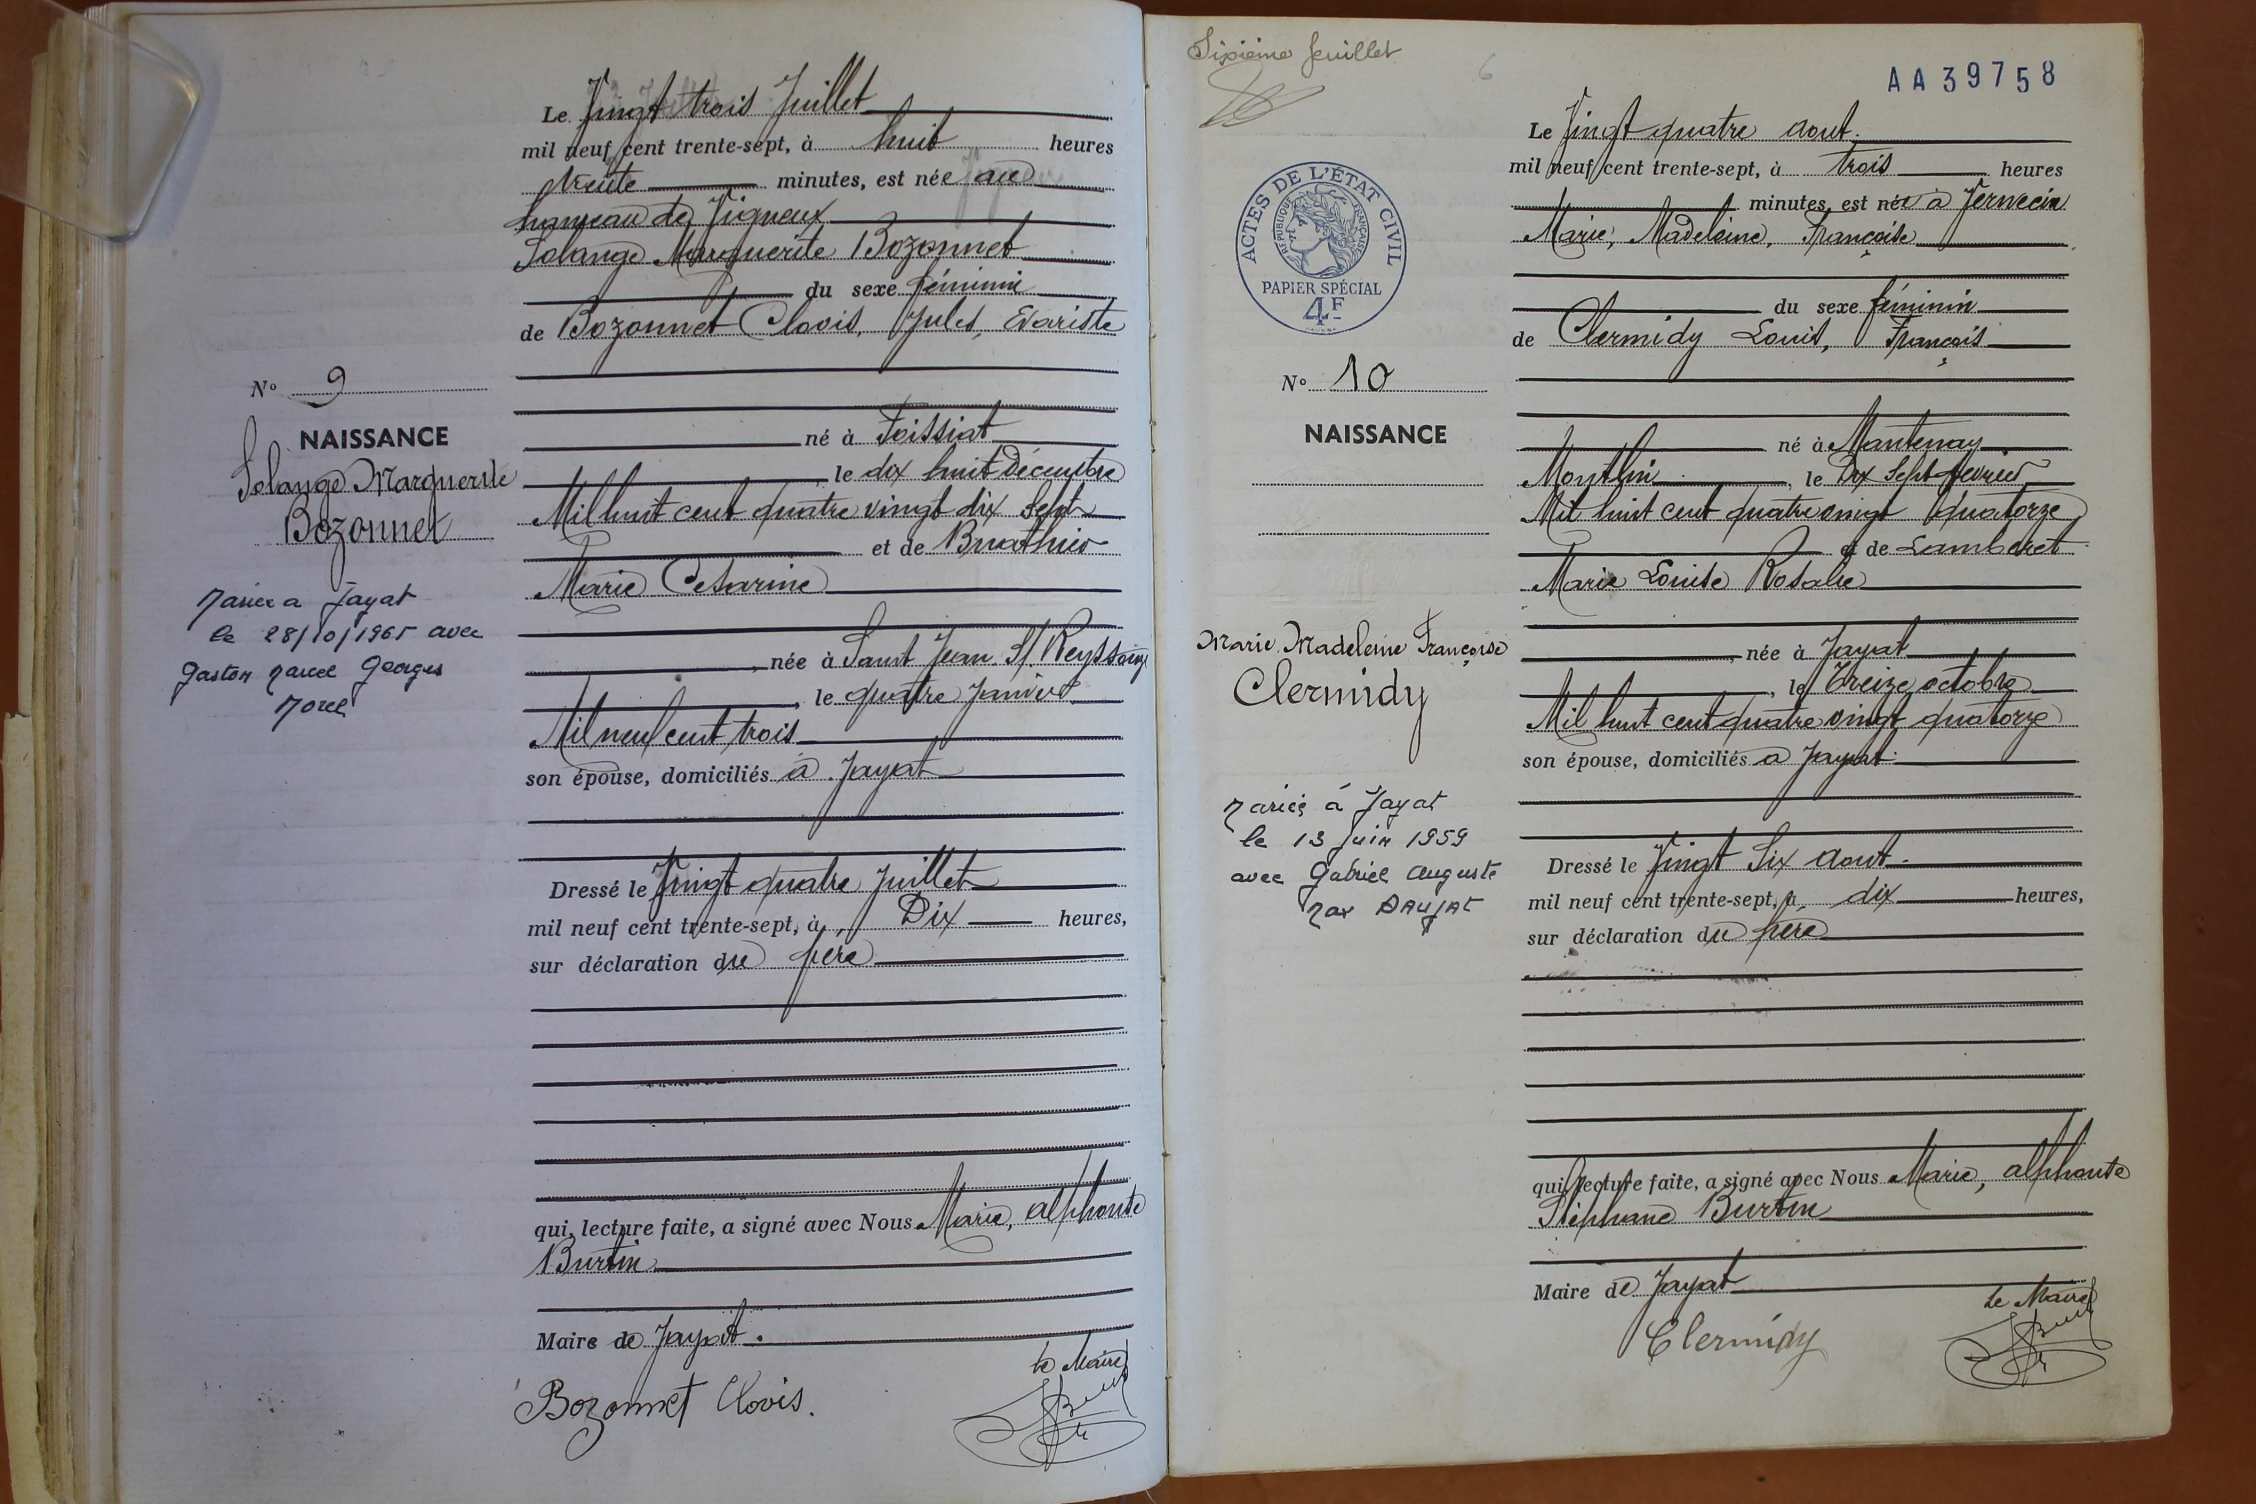 Le Vingt trois Juillet
mil neuf cent trente-sept, à huit heures
trente minutes, est née au
hameau de Vigneux
Solange Marguerite Bozonnet
du sexe féminin
de Bozonnet Clovis, Jules, Evariste
N° 9
NAISSANCE
Solange Marguerite
Bozonnet
né à Foissiat
, le dix huit Décembre
Mil huit cent quatre vingt dix sept
et de Bruathier
Marie Cesarine
Mariée a Jayat
le 28/10/1965 avec
Gaston Marcel Georges
Morel
, née à Saint Jean S/ Reyssouze
, le quatre Janvier
Mil neuf cent trois
son épouse, domiciliés à Jayat
Dressé le Vingt quatre Juillet
mil neuf cent trente-sept, à Dix heures,
sur déclaration du père
qui, lecture faite, a signé avec Nous Marie, Alphonse
Burtin
Maire de Jayat.
Le Maire
Bozonnet Clovis.
Sixième feuillet
6
AA39758
Le Vingt quatre aout.
mil neuf cent trente-sept, à trois heures
minutes, est née à
Marie, Madeleine, Françoise
ACTES DE L'ÉTAT CIVIL
RÉPUBLIQUE FRANÇAISE
PAPIER SPÉCIAL
4F
du sexe féminin
de Clermidy Louis, François
N° 10
NAISSANCE
né à Mantenay
Montlin, le Dix Sept février
Mil huit cent quatre vingt quatorze
et de Lamberet
Marie Louise Rosalie
Marie Madeleine Françoise
Clermidy
, née à Jayat
, le Treize octobre
Mil huit cent quatre vingt quatorze
son épouse, domiciliés a Jayat
Mariée à Jayat
le 13 Juin 1959
avec Gabriel Auguste
Max DAUJAT
Dressé le Vingt Six aout
mil neuf cent trente-sept, à dix heures,
sur déclaration du père
qui, lecture faite, a signé avec Nous Marie, Alphonse
Stéphane Burtin
Maire de Jayat
Le Maire
Clermidy